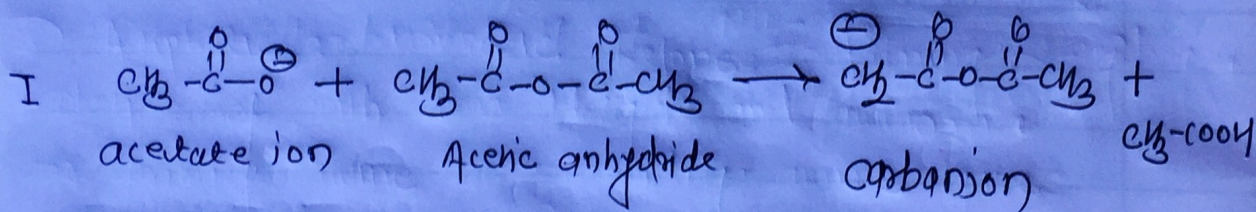 I CH3-C(=O)-O⊖ + CH3-C(=O)-O-C(=O)-CH3 ⟶ ⊖CH2-C(=O)-O-C(=O)-CH3 +
CH3-COOH
acetate ion Acetic anhydride Carbanion